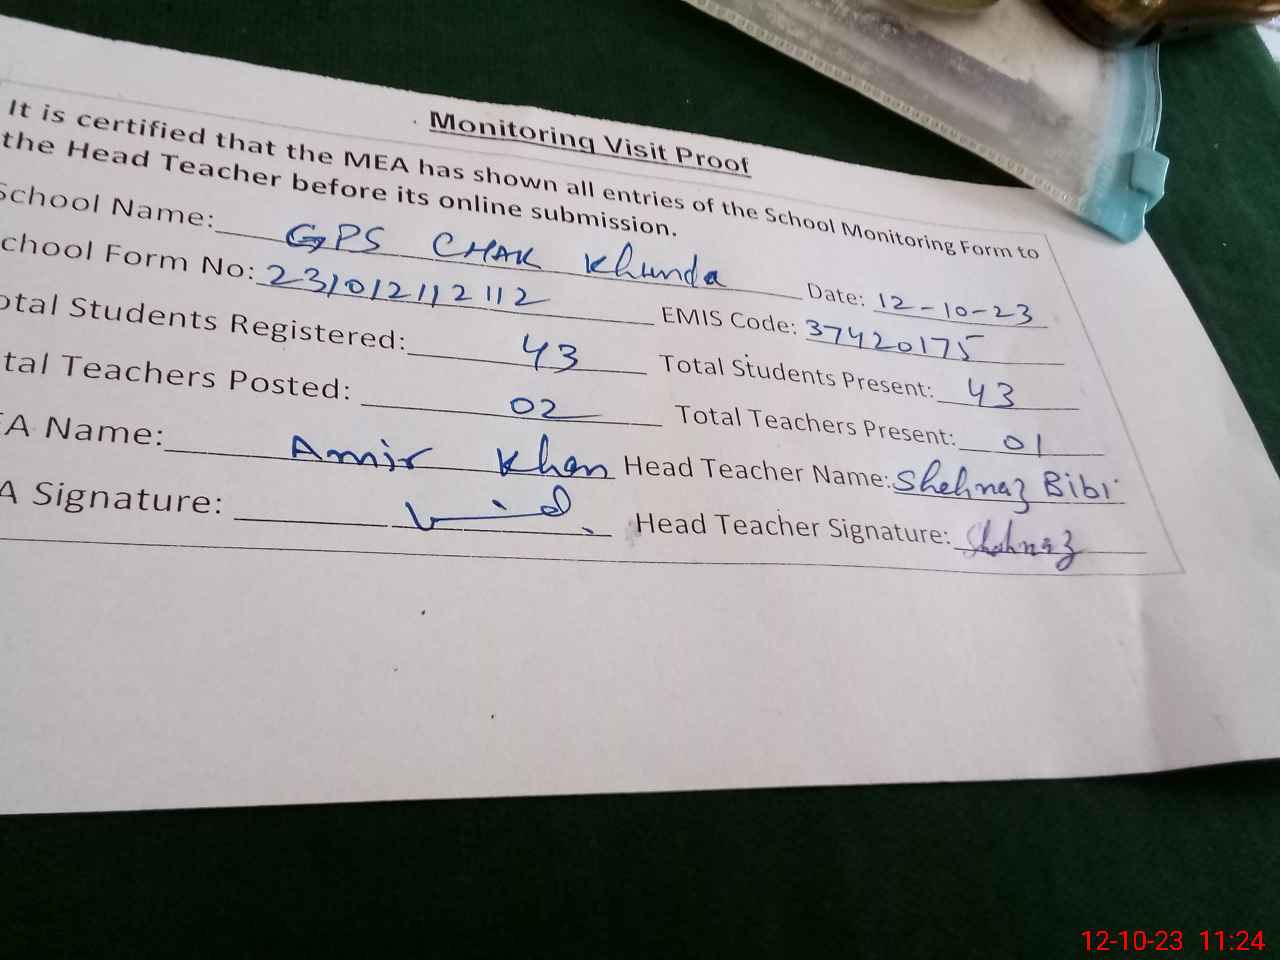 Monitoring Visit Proof
It is certified that the MEA has shown all entries of the School Monitoring Form to
the Head Teacher before its online submission.
School Name: GPS CHAK Khunda Date: 12-10-23
chool Form No: 231012112112 EMIS Code: 37420175
otal Students Registered: 43 Total Students Present: 43
tal Teachers Posted: 02 Total Teachers Present: 01
EA Name: Amir Khan Head Teacher Name: Shehnaz Bibi
A Signature: Head Teacher Signature: Shahnaz
12-10-23 11:24